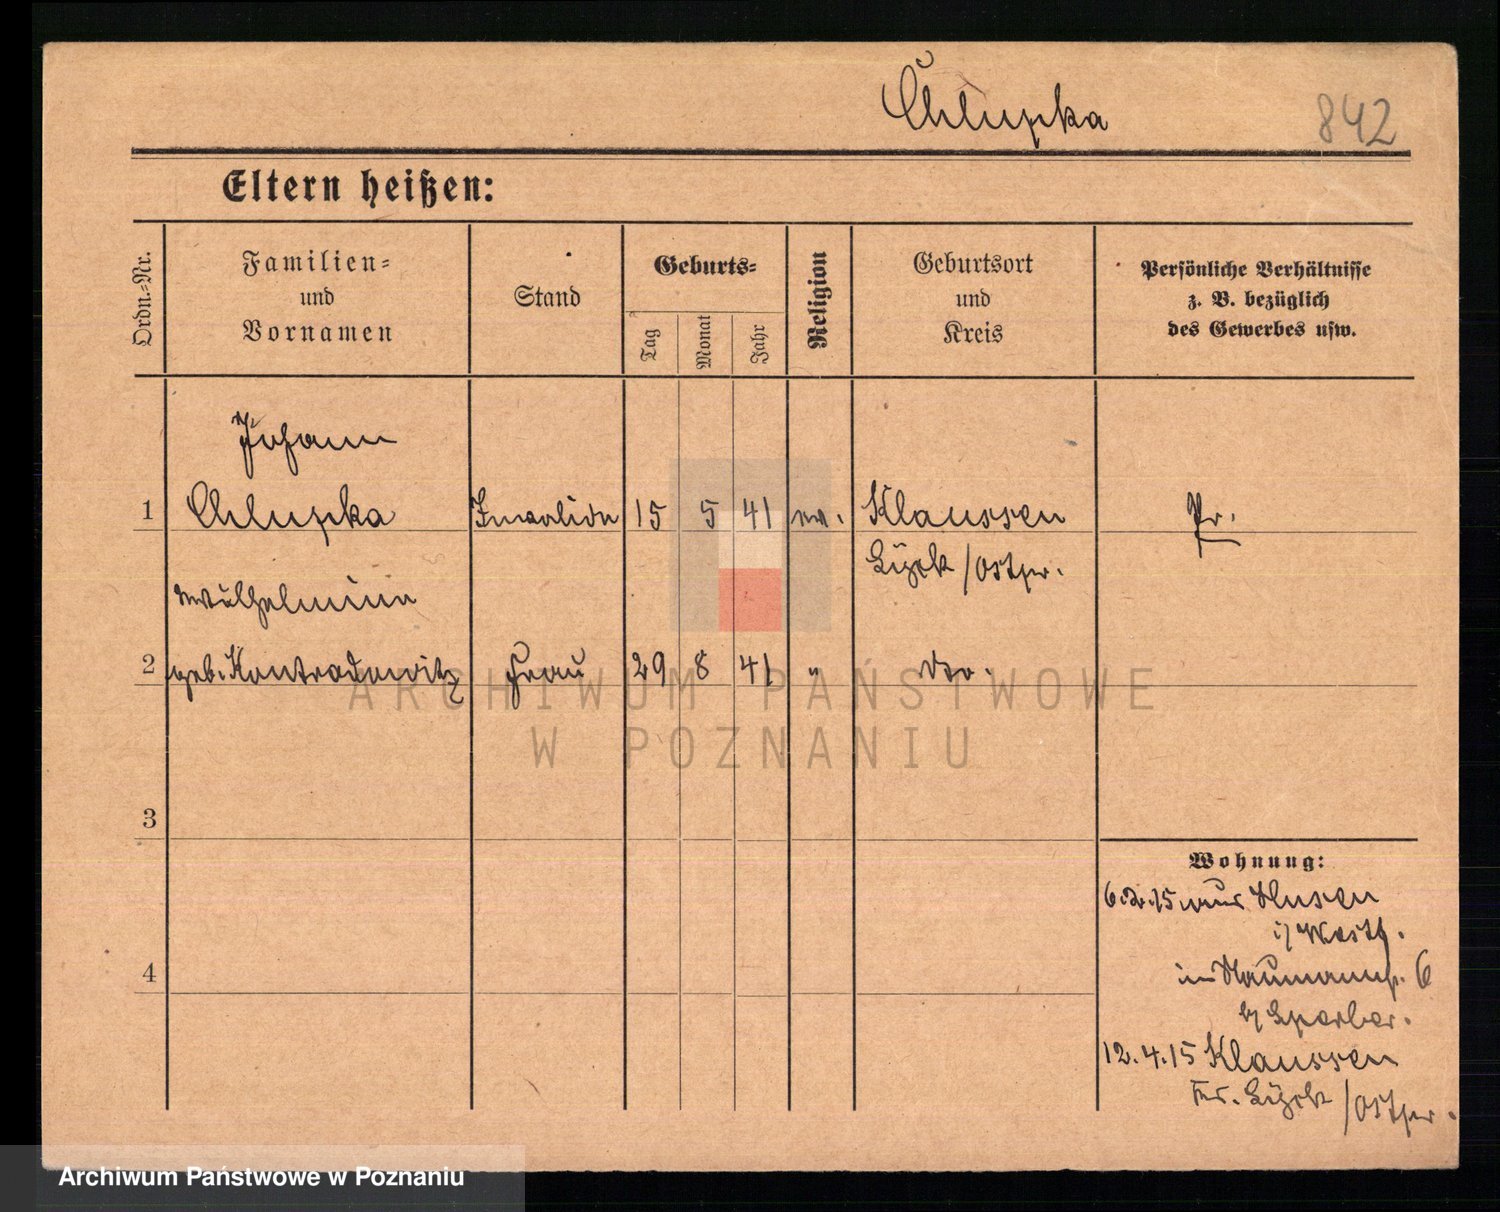 Chlupka
842
Eltern heißen:
Ordn.-Nr.
Familien-
und
Vornamen
Stand
Geburts-
Tag
Monat
Jahr
Religion
Geburtsort
und
Kreis
Persönliche Verhältnisse
z. B. bezüglich
des Gewerbes usw.
Johann
1 Chlupka Invalide 15 5 41 ev. Klaussen Pr.
Lyck / Ostpr.
Wilhelmine
2 geb. Kontradowitz Frau 29 8 41 " do.
3
4
Wohnung:
6.2.15 aus Husen
i/ Westf.
in Naumannstr. 6
b/ Sperber.
12.4.15 Klaussen
Kr. Lyck / Ostpr.
ARCHIWUM PAŃSTWOWE
W POZNANIU
Archiwum Państwowe w Poznaniu